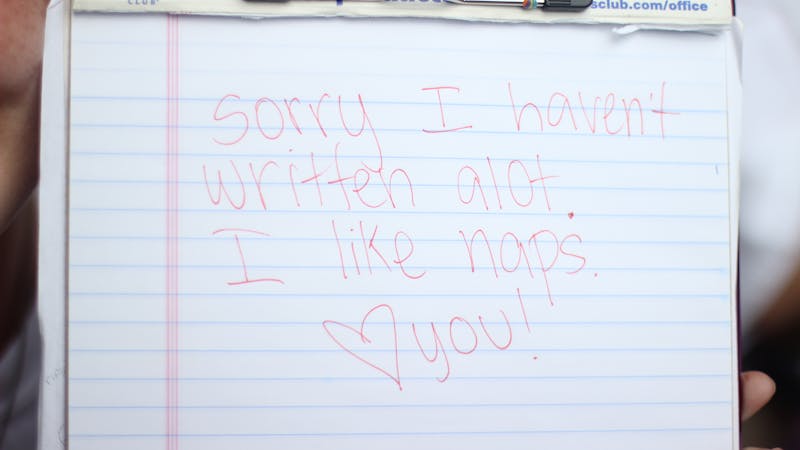 CLUB
sclub.com/office
sorry I haven't
written alot.
I like naps.
♡ you!